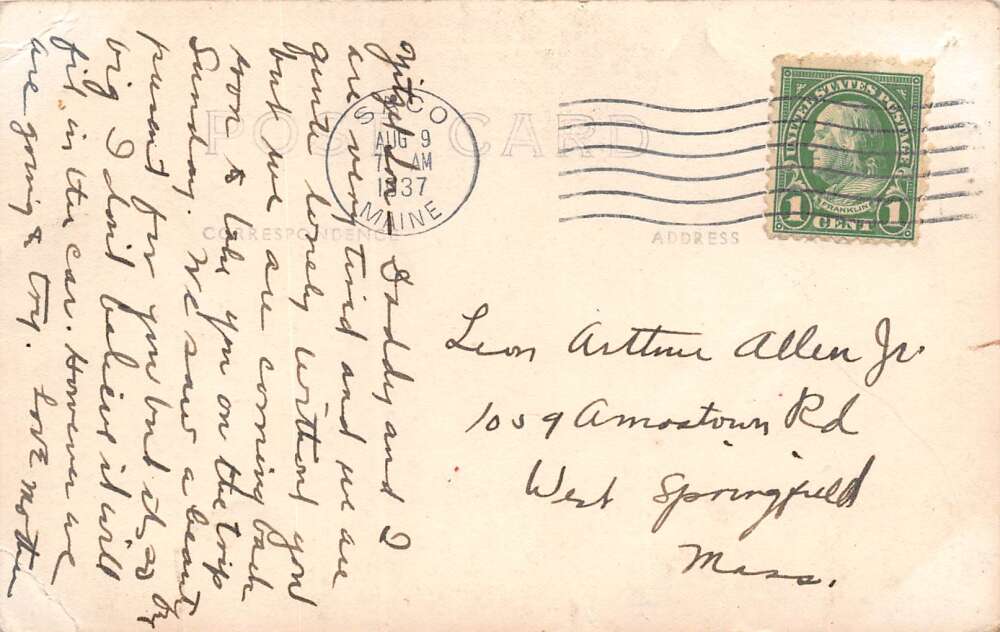 POST CARD
CORRESPONDENCE
ADDRESS
SACO
AUG 9
AM
1937
MAINE
UNITED STATES POSTAGE
FRANKLIN
1 CENT 1
Daddy and I
are very tired and we are
quite lonely without you
but we are coming back
soon to take you on the trip
Sunday. We saw a
present for you but its so
big I don't believe it will
fit in the car. However we
are going to try. Love Mother
Leon Arthur Allen Jr.
1059 Amostown Rd
West Springfield
Mass.